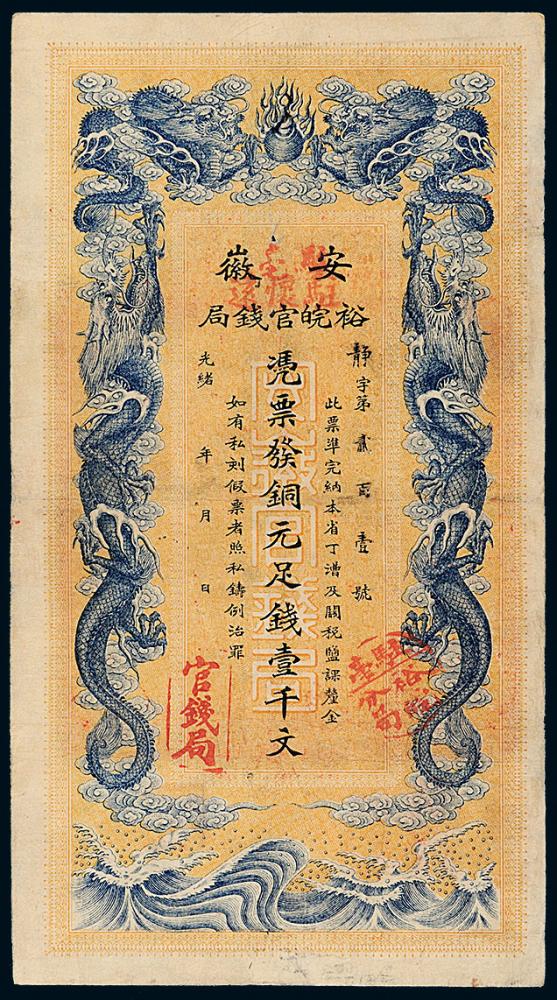 安徽
裕皖官錢局
靜字第貳百壹號
此票準完納本省丁漕及關稅鹽課釐金
憑票發銅元足錢壹千文
如有私刻假票者照私鑄例治罪
光緒 年 月 日
官錢局